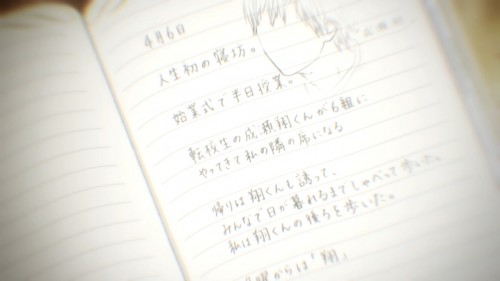 4月6日
人生初の寝坊。
始業式で半日授業。
転校生の成瀬翔くんが6組に
やってきて私の隣の席になる
帰りは翔くんも誘って、
みんなで日が暮れるまでしゃべって歩いた。
私は翔くんの後ろを歩いた。
からは「翔」